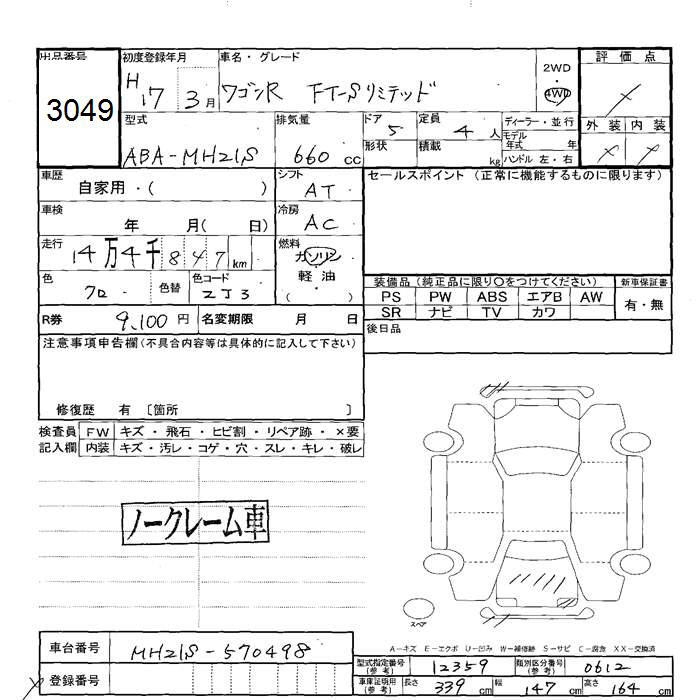 出品番号
3049
初度登録年月
H17 3月
車名・グレード
ワゴンR FT-Sリミテッド
2WD
4WD
評価点
外装 内装
型式
ABA-MH21S
排気量
660 cc
ドア 5
形状
定員 4 人
積載 kg
ディーラー・並行
モデル年式 年
ハンドル 左・右
車歴
自家用・( )
シフト
AT
セールスポイント (正常に機能するものに限ります)
車検
年 月( 日)
冷房
AC
走行
14万4千847km
燃料
ガソリン
軽油
( )
色
クロ
色替
色コード
ZJ3
装備品 (純正品に限り○をつけてください)
新車保証書
PS PW ABS エアB AW
SR ナビ TV カワ
有・無
R券 9,100円
名変期限 月 日
後日品
注意事項申告欄(不具合内容等は具体的に記入して下さい)
修復歴 有 〔箇所 〕
検査員 FW キズ・飛石・ヒビ割・リペア跡・×要
記入欄 内装 キズ・汚レ・コゲ・穴・スレ・キレ・破レ
ノークレーム車
スペア
A-キズ E-エクボ U-凹み W-補修跡 S-サビ C-腐食 XX-交換済
車台番号 MH21S-570498
登録番号
型式指定番号(参考) 12359
類別区分番号(参考) 0612
車庫証明用(参考) 長さ 339 cm 幅 147 cm 高さ 164 cm